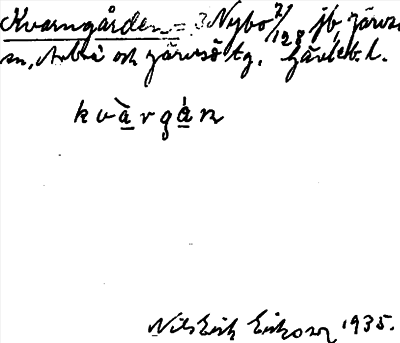 Kvarngården = Nybo 2/128 jb, Järvsö
sn, Arbrå och Järvsö tg. Gävleb. l.
k v à r g å n
Nils Erik Eriksson 1935.